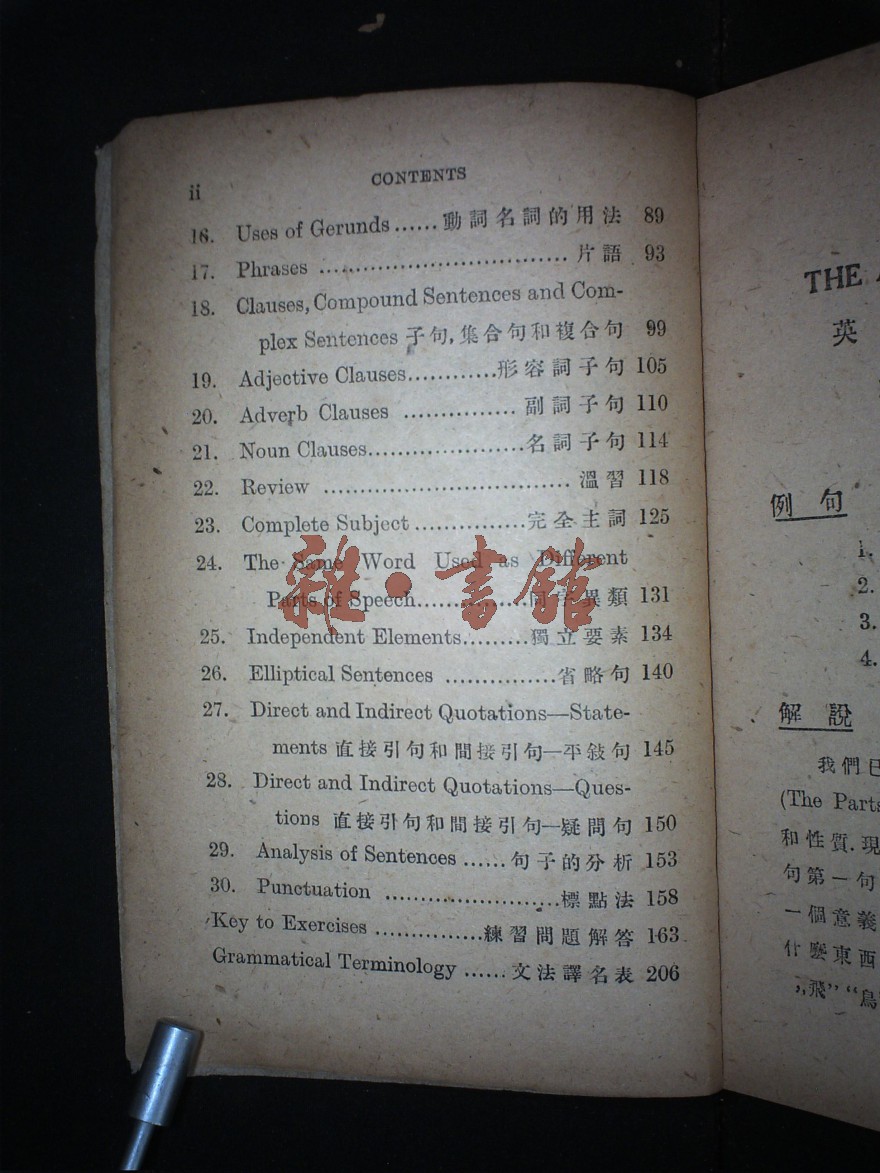 ii
CONTENTS
16. Uses of Gerunds......動詞名詞的用法 89
17. Phrases .................................片語 93
18. Clauses, Compound Sentences and Com-
plex Sentences 子句,集合句和複合句 99
19. Adjective Clauses............形容詞子句 105
20. Adverb Clauses ...............副詞子句 110
21. Noun Clauses......................名詞子句 114
22. Review .................................溫習 118
23. Complete Subject...............完全主詞 125
24. The Same Word Used as Different
Parts of Speech...............同字異類 131
25. Independent Elements.........獨立要素 134
26. Elliptical Sentences ...............省略句 140
27. Direct and Indirect Quotations—State-
ments 直接引句和間接引句—平敍句 145
28. Direct and Indirect Quotations—Ques-
tions 直接引句和間接引句—疑問句 150
29. Analysis of Sentences......句子的分析 153
30. Punctuation ........................標點法 158
Key to Exercises ...............練習問題解答 163
Grammatical Terminology ......文法譯名表 206
雜·書舘
THE
英
例句
1.
2.
3.
4.
解說
我們已
(The Parts
和性質.現
句第一句
一個意義
什麼東西
飛”“鳥